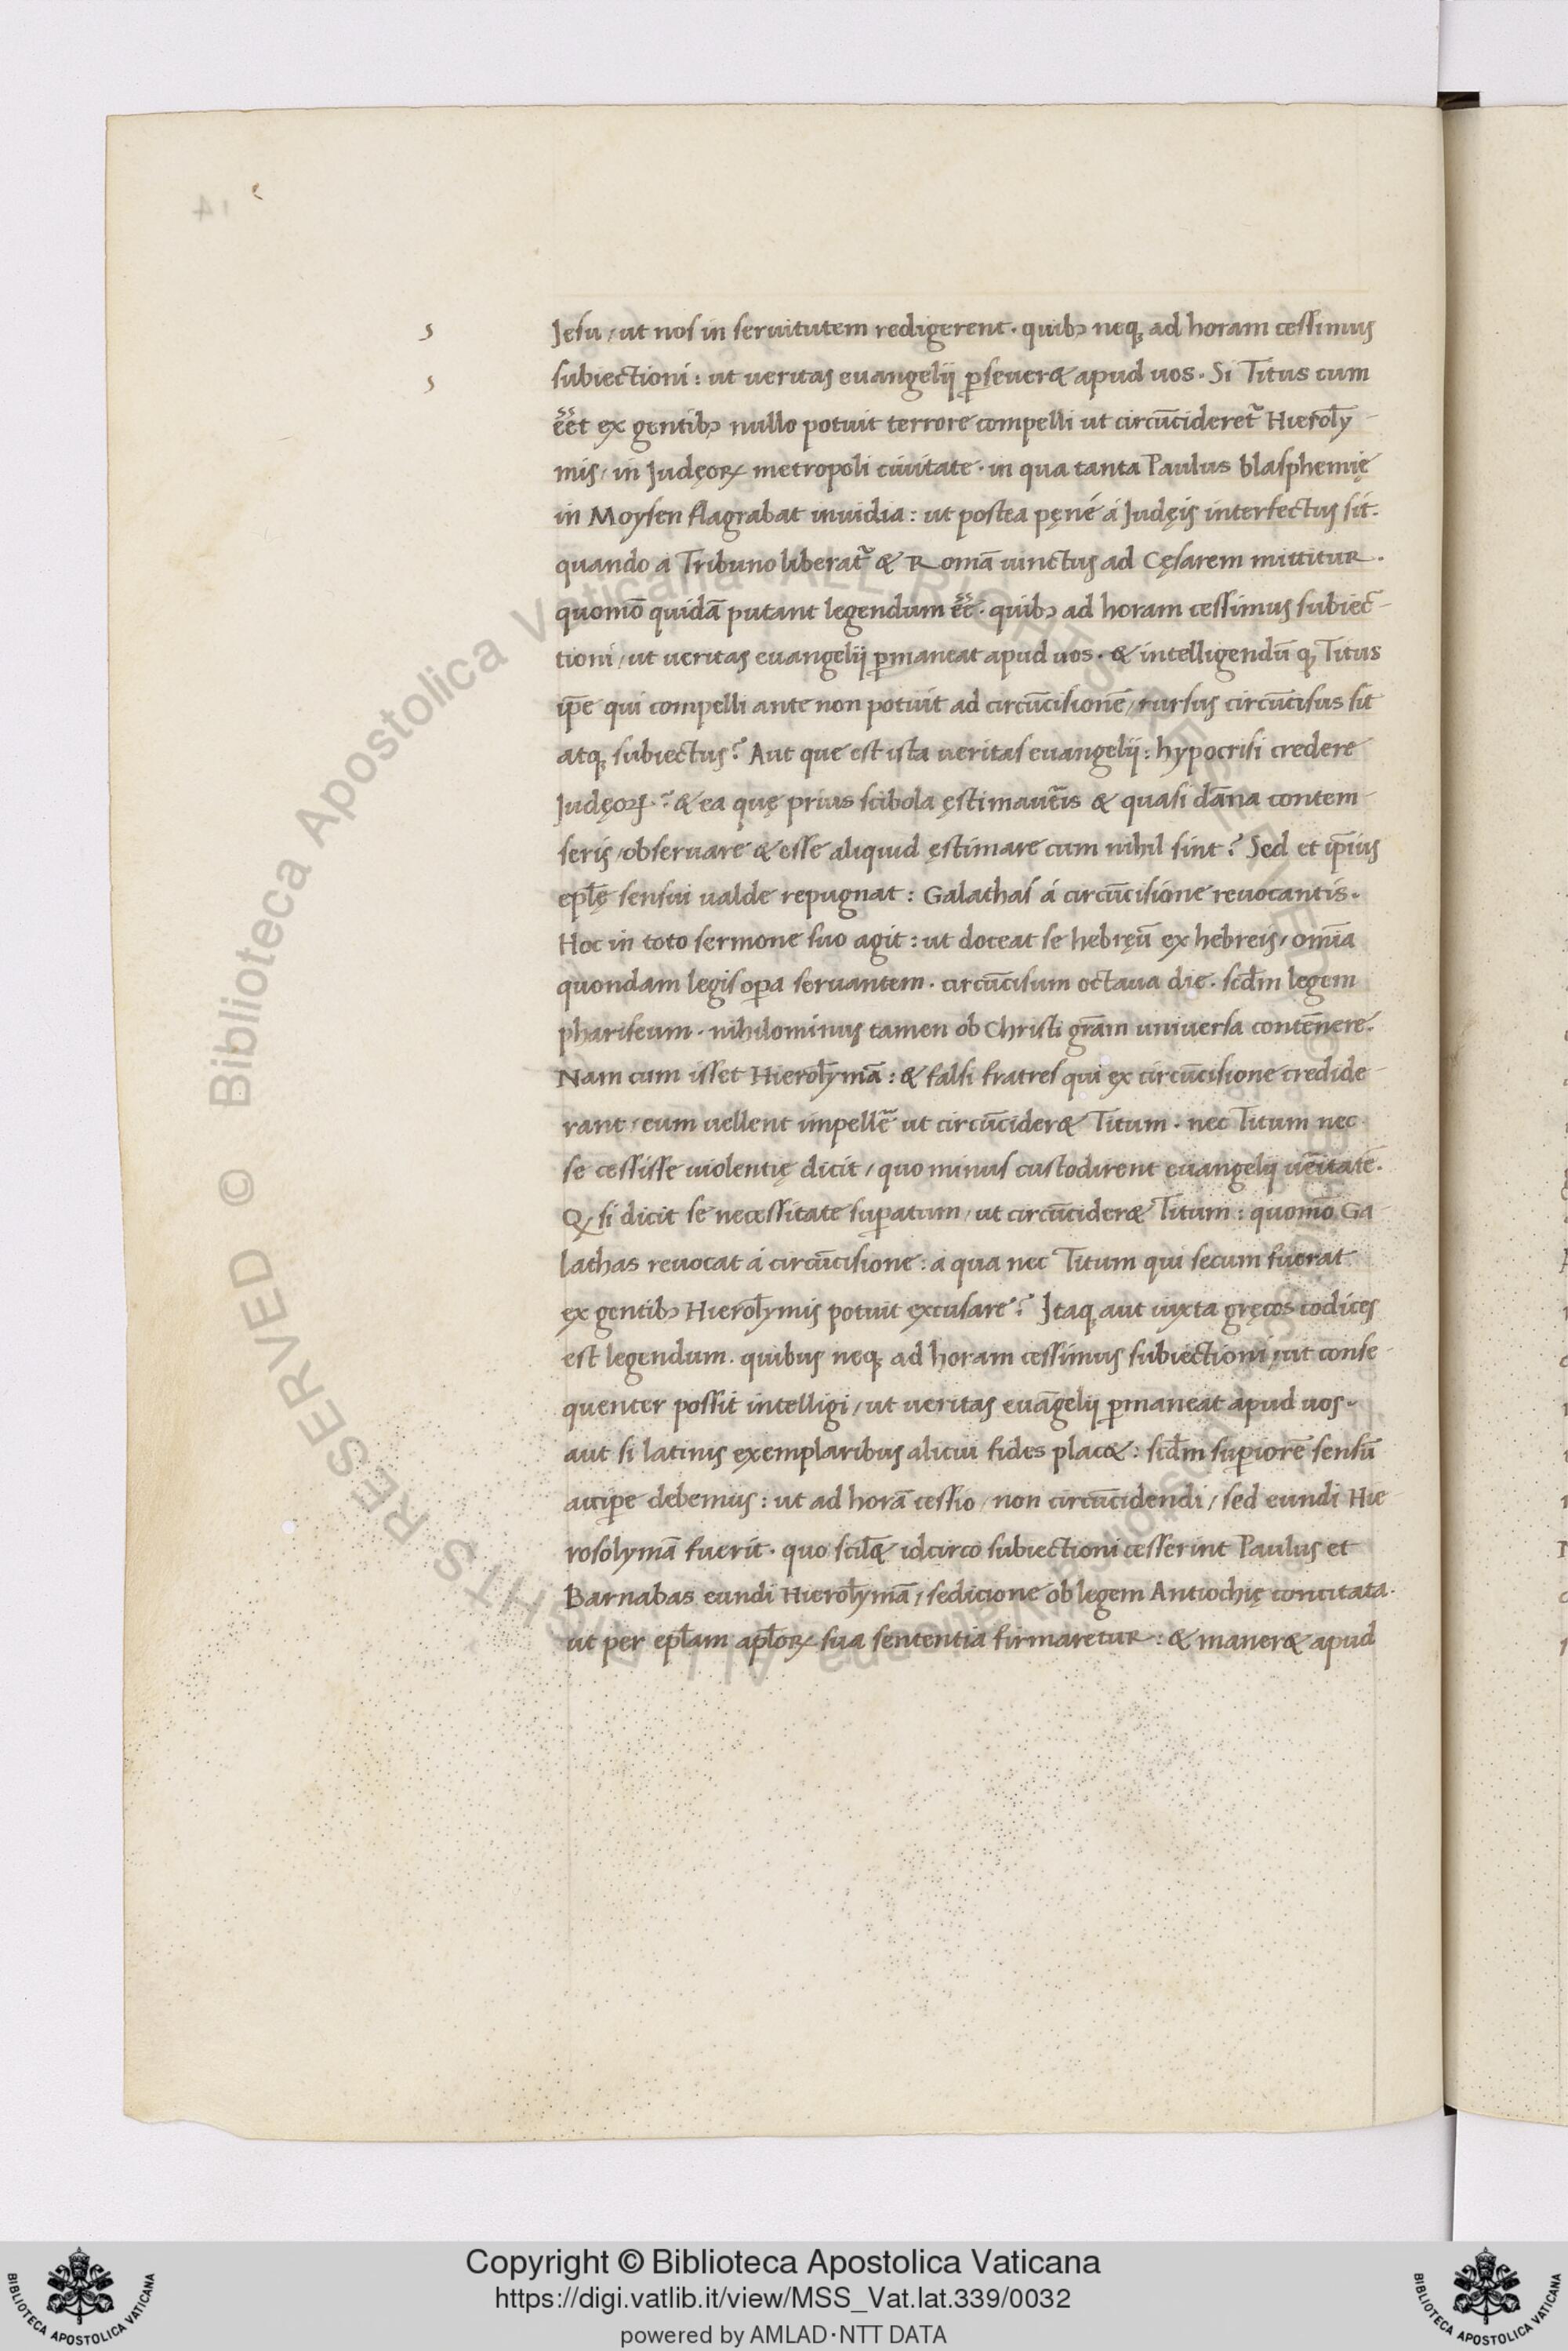 Jesu, ut nos in seruitutem redigerent. quibꝫ neqꝫ ad horam cessimus
subiectioni: ut ueritas euangelij ꝑseuer& apud uos. Si Titus cum
e͠et ex gentibꝫ nullo potuit terrore compelli ut circūcideret᷑ Hierol̄y
mis, in Judęoꝝ metropoli ciuitate. in qua tanta Paulus blasphemię
in Moysen flagrabat inuidia: ut postea pęné á Judęis interfectus sit.
quando a Tribuno liberat᷑ & Romā uinctus ad Cęsarem mittitur.
quomō quidā putant legendum e͠e. quibꝫ ad horam cessimus subiec
tioni, ut ueritas euangelij ꝑmaneat apud uos. & intelligendū qꝫ Titus
ip̄e qui compelli ante non potuit ad circūcisionē, rursus circūcisus sit
atqꝫ subiectus? Aut que est ista ueritas euangelij: hypocrisi credere
Judęoꝝ? & ea quę prius scibola ęstimaueris & quasi dāna contem
seris, obseruare & esse aliquid ęstimare cum nihil sint? Sed et ip̄ius
epl̄ę sensui ualde repugnat: Galathas á circūcisione reuocantis.
Hoc in toto sermone suo agit: ut doceat se hebręū ex hebreis, om̄ia
quondam legis oꝑa seruantem. circūcisum octaua die. scd̄m legem
phariseum. nihilominus tamen ob Christi grām uniuersa contēnere.
Nam cum isset Hierol̄ymā: & falsi fratres qui ex circūcisione credide
rant, eum uellent impellē ut circūcider& Titum. nec Titum nec
se cessisse uiolentię dicit, quo minus custodirent euangelij uēitatē.
Qꝫ si dicit se necessitate suꝑatum, ut circūcider& Titum: quomō Ga
lathas reuocat á circūcisione: a qua nec Titum qui secum fuerat
ex gentibꝫ Hierol̄ymis potuit excusare? Itaqꝫ aut iuxta gręcos codices
est legendum. quibus neqꝫ ad horam cessimus subiectioni, ut conse
quenter possit intelligi, ut ueritas euāgelij ꝑmaneat apud uos.
aut si latinis exemplaribus alicui fides plac&: scd̄m suꝑiorē sensū
acciꝑe debemus: ut ad horā cessio, non circūcidendi, sed eundi Hie
rosolymā fuerit. quo scil̄& idcirco subiectioni cesserint Paulus et
Barnabas eundi Hierol̄ymā, sedicione ob legem Antiochię concitata.
ut per epl̄am apl̄oꝝ sua sententia firmaretur: & maner& apud
14
s
s
© Biblioteca Apostolica Vaticana ALL RIGHTS RESERVED
Copyright © Biblioteca Apostolica Vaticana
https://digi.vatlib.it/view/MSS_Vat.lat.339/0032
powered by AMLAD·NTT DATA
BIBLIOTECA APOSTOLICA VATICANA
BIBLIOTECA APOSTOLICA VATICANA